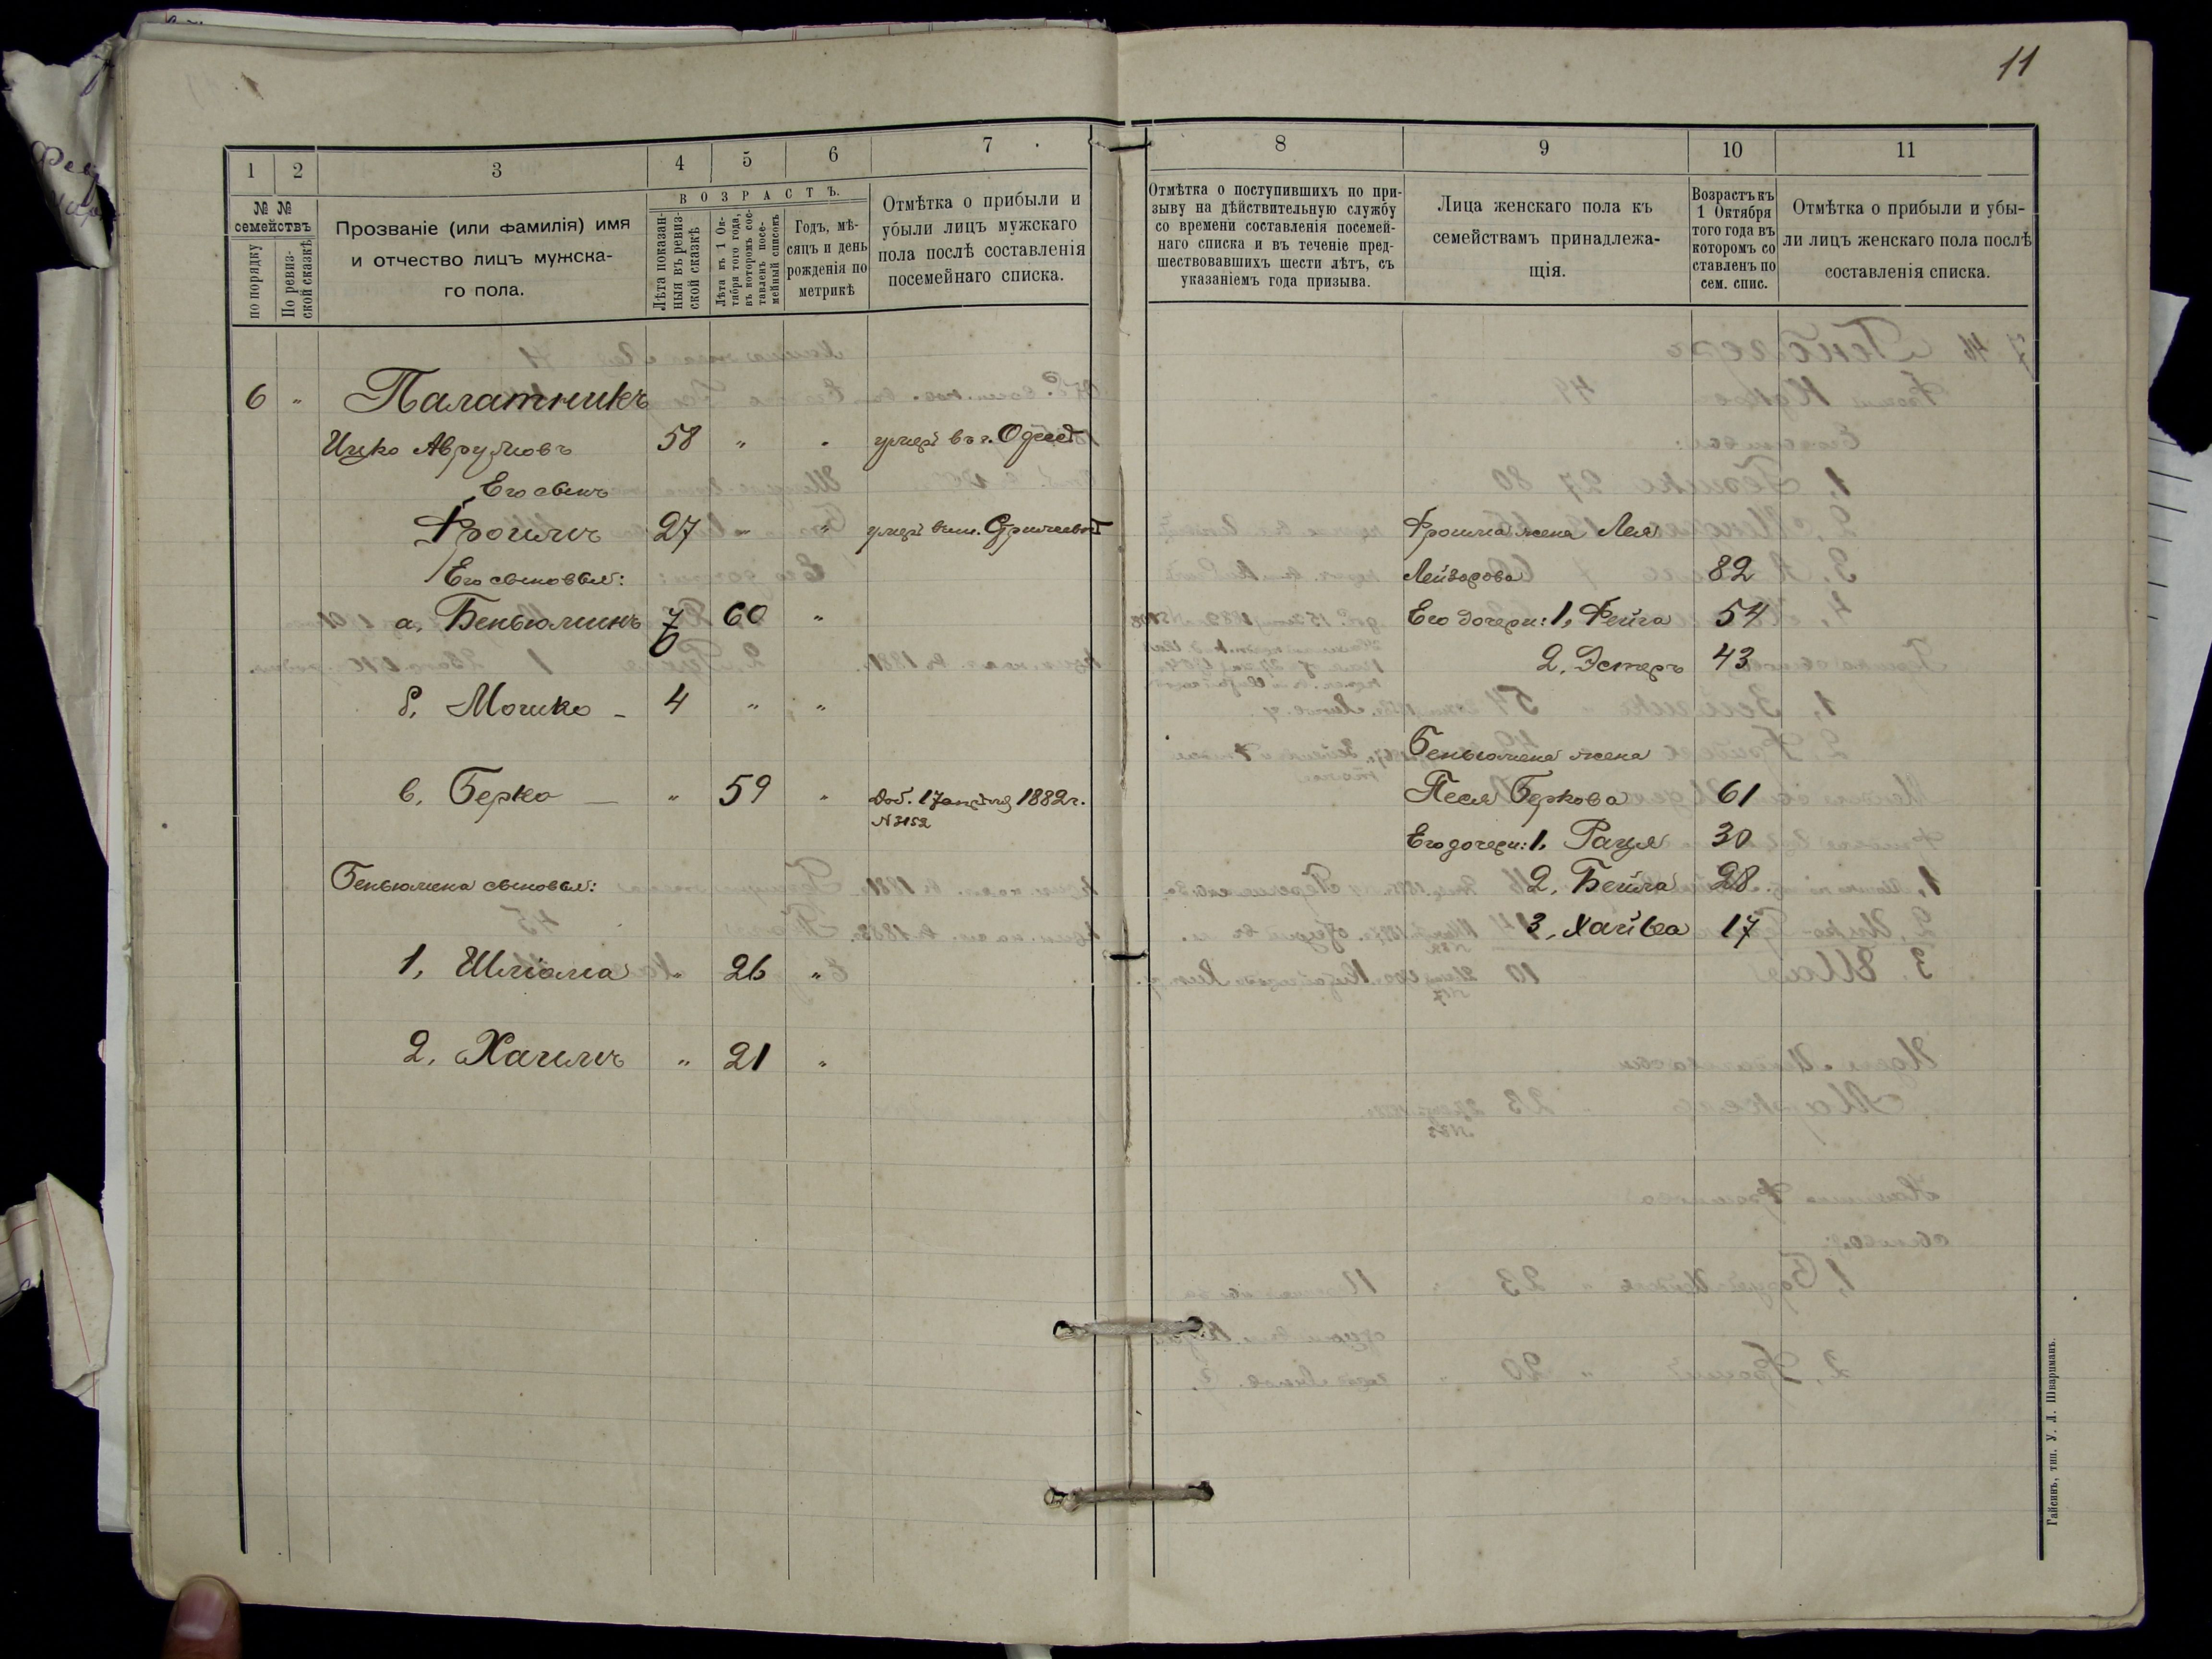 11
1 2 3 4 5 6 7
8 9 10 11
№ № семействъ
по порядку
По ревиз-
ской сказкѣ
Прозваніе (или фамилія) имя
и отчество лицъ мужска-
го пола.
ВОЗРАСТЪ.
Лѣта показан-
ныя въ ревиз-
ской сказкѣ
Лѣта къ 1 Ок-
тября того года,
въ которомъ сос-
тавленъ посе-
мейный списокъ
Годъ, мѣ-
сяцъ и день
рожденія по
метрикѣ
Отмѣтка о прибыли и
убыли лицъ мужскаго
пола послѣ составленія
посемейнаго списка.
Отмѣтка о поступившихъ по при-
зыву на дѣйствительную службу
со времени составленія посемей-
наго списка и въ теченіе пред-
шествовавшихъ шести лѣтъ, съ
указаніемъ года призыва.
Лица женскаго пола къ
семействамъ принадлежа-
щія.
Возрастъ къ
1 Октября
того года въ
которомъ со
ставленъ по
сем. спис.
Отмѣтка о прибыли и убы-
ли лицъ женскаго пола послѣ
составленія списка.
6 " Палатникъ
Ицко Аврумовъ 58 " " умеръ въ г. Одессѣ
Его сынъ
Фроимъ 27 " " умеръ въ м.
Его сыновья:
а, Беньюминъ 7 60 "
6
б, Мошко - 4 " "
в, Берко — " 59 " Доб. 17 1882 г.
N 3152
Беньюмена сыновья:
1, Шліома " 26 "
2, Хаимъ " 21 "
Фроима жена Лея
Лейзорова 82
Его дочери: 1, Фейга 54
2, Эстеръ 43
Беньюмена жена
Песя Беркова 61
Его дочери: 1, Рация 30
2, Бейла 28
3, Хайва 17
Гайсинъ, тип. У. Л. Шварцманъ.